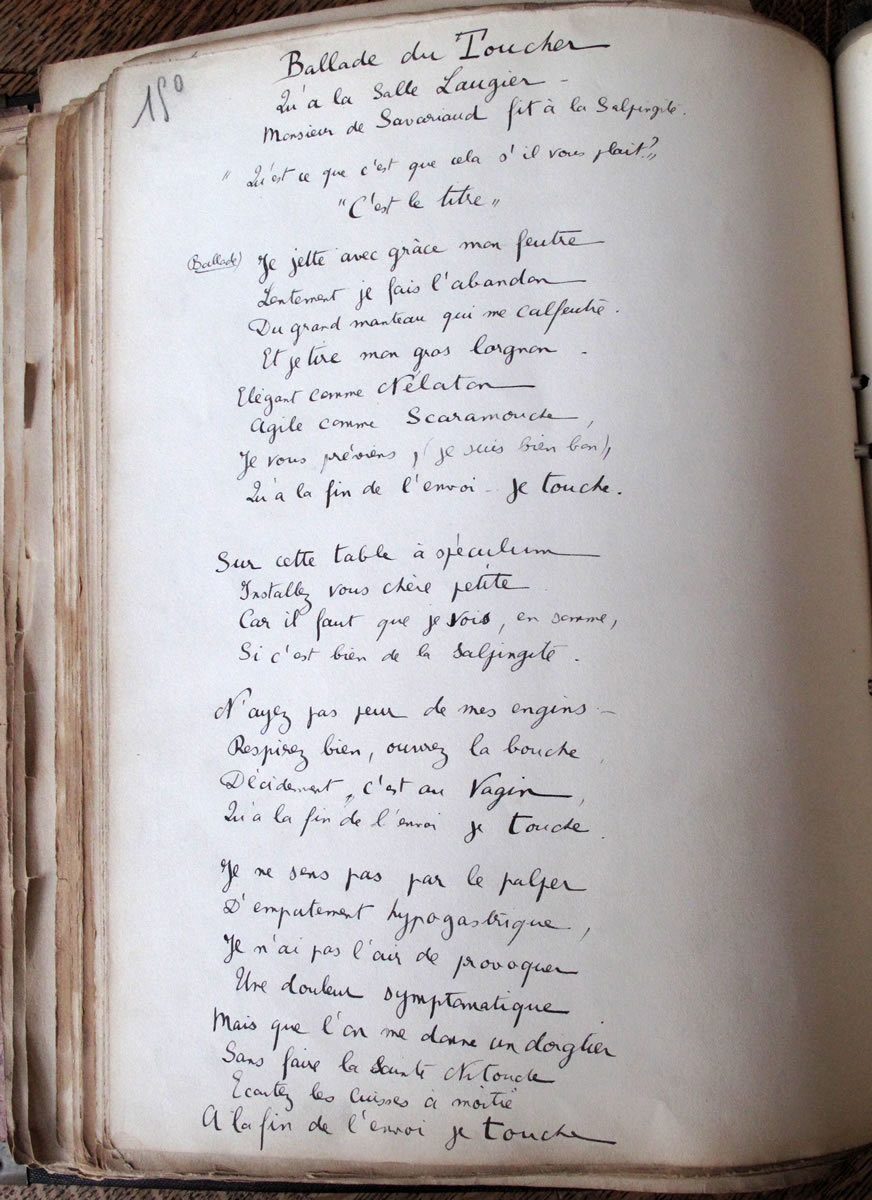 150
Ballade du Toucher
Qu'a la Salle Laugier -
Monsieur de Savariaud fit à la Salpingite.
" Qu'est ce que c'est que cela s'il vous plait? "
"C'est le titre"
(Ballade) Je jette avec grâce mon feutre
Lentement je fais l'abandon
Du grand manteau qui me calfeutre.
Et je tire mon gros lorgnon.
Elégant comme Nélaton
Agile comme Scaramouche,
Je vous préviens, (je suis bien bon),
Qu'à la fin de l'envoi - je touche.
Sur cette table à spéculum
Installez vous chère petite
Car il faut que je vois, en somme,
Si c'est bien de la Salpingite.
N'ayez pas peur de mes engins -
Respirez bien, ouvrez la bouche,
Décidement, c'est au Vagin,
Qu'a la fin de l'envoi je touche.
Je ne sens pas par le palper
D'empatement hypogastrique,
Je n'ai pas l'air de provoquer
Une douleur symptomatique
Mais que l'on me donne un doigtier
Sans faire la Sainte Nitouche
Ecartez les cuisses à moitié
A la fin de l'envoi je touche